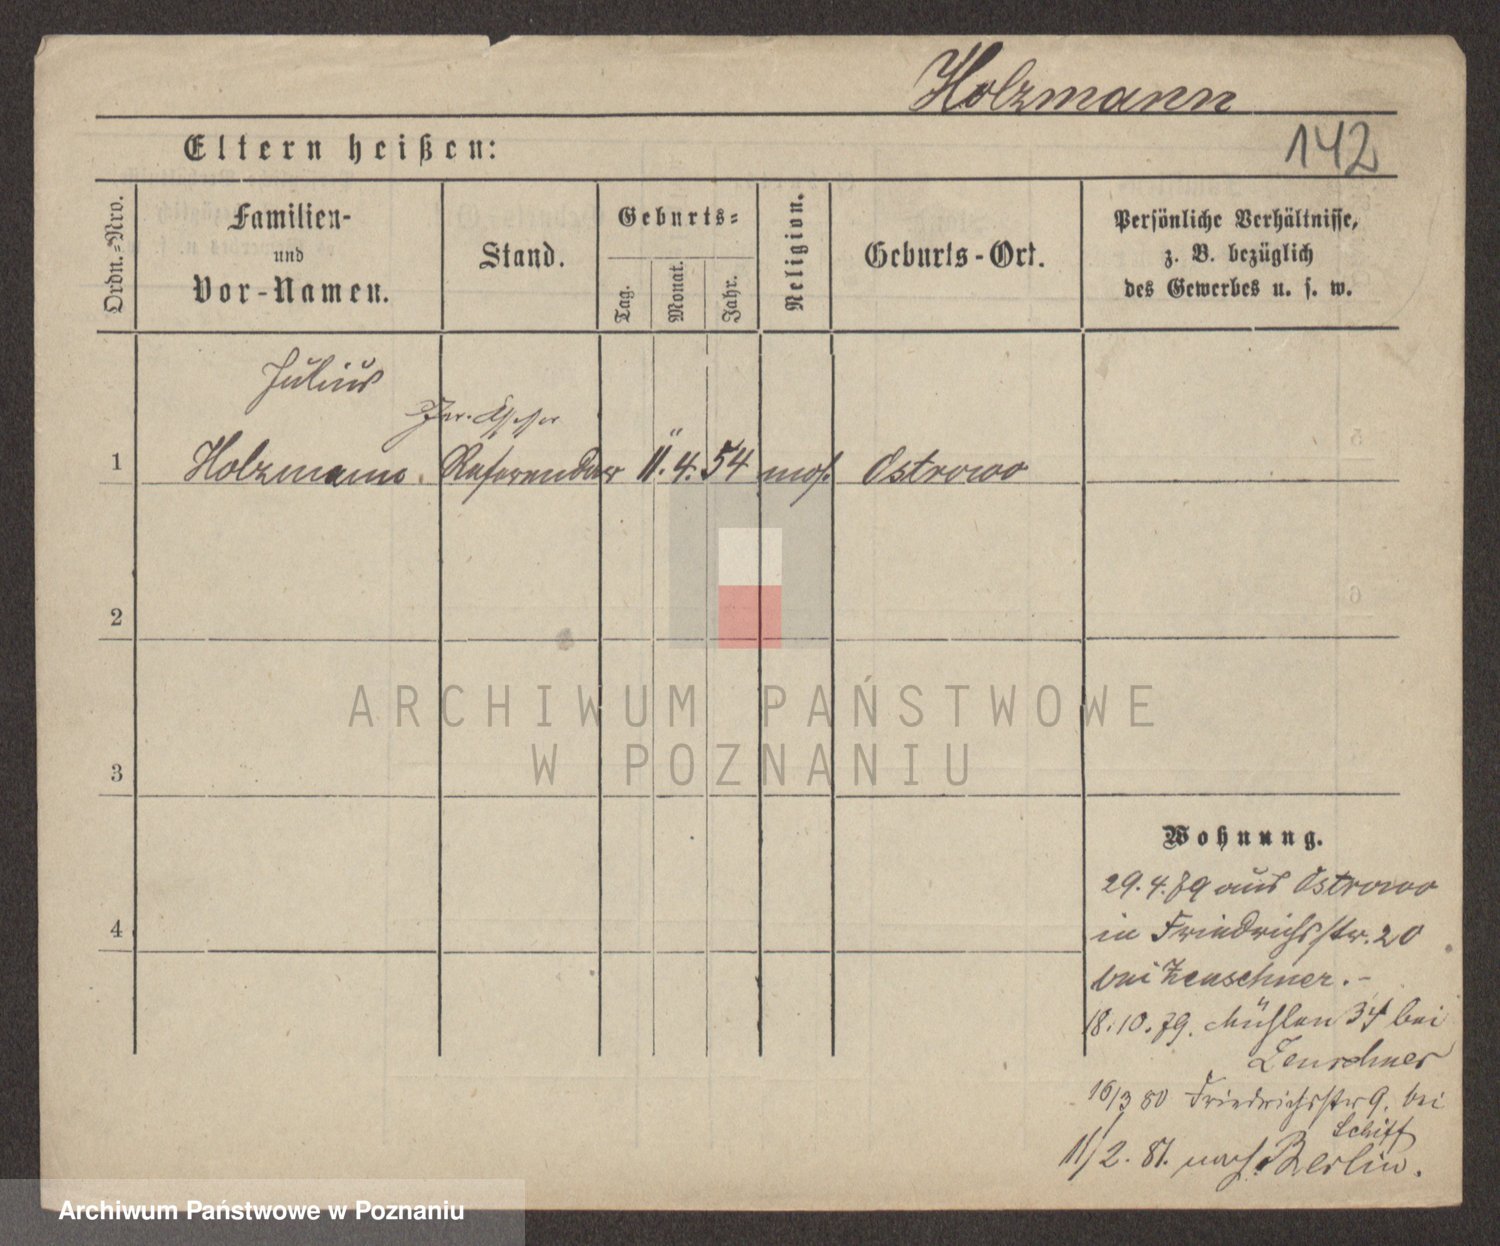 Holzmann
142
Eltern heißen:
Ordn.=Nro.
Familien-
und
Vor-Namen.
Stand.
Geburts=
Tag.
Monat.
Jahr.
Religion.
Geburts-Ort.
Persönliche Verhältnisse,
z. B. bezüglich
des Gewerbes u. s. w.
Julius
1 Holzmann. Referendar 11. 4. 54 mos. Ostrowo
2
3
4
ARCHIWUM PAŃSTWOWE
W POZNANIU
Wohnung.
29.4.79 aus Ostrowo
in Friedrichsstr. 20
bei Zenschner.-
18.10.79. Mühlen 34 bei
Zenschner
16/3 80 Friedrichsstr 9. bei
Schiff
11/2. 81. nach Berlin.
Archiwum Państwowe w Poznaniu